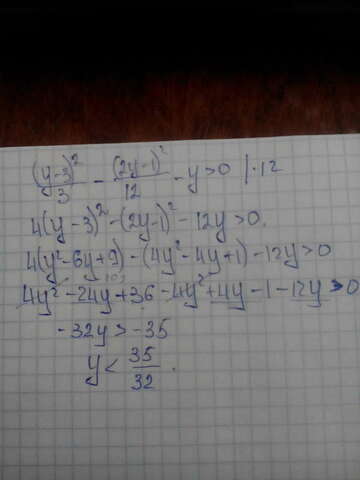 (y-3)²/3 - (2y-1)²/12 - y>0 |·12
4(y-3)² - (2y-1)² - 12y>0.
4(y²-6y+9) - (4y²-4y+1) - 12y>0
4y² - 24y + 36 - 4y² + 4y - 1 - 12y > 0
-32y > -35
y < 35/32.